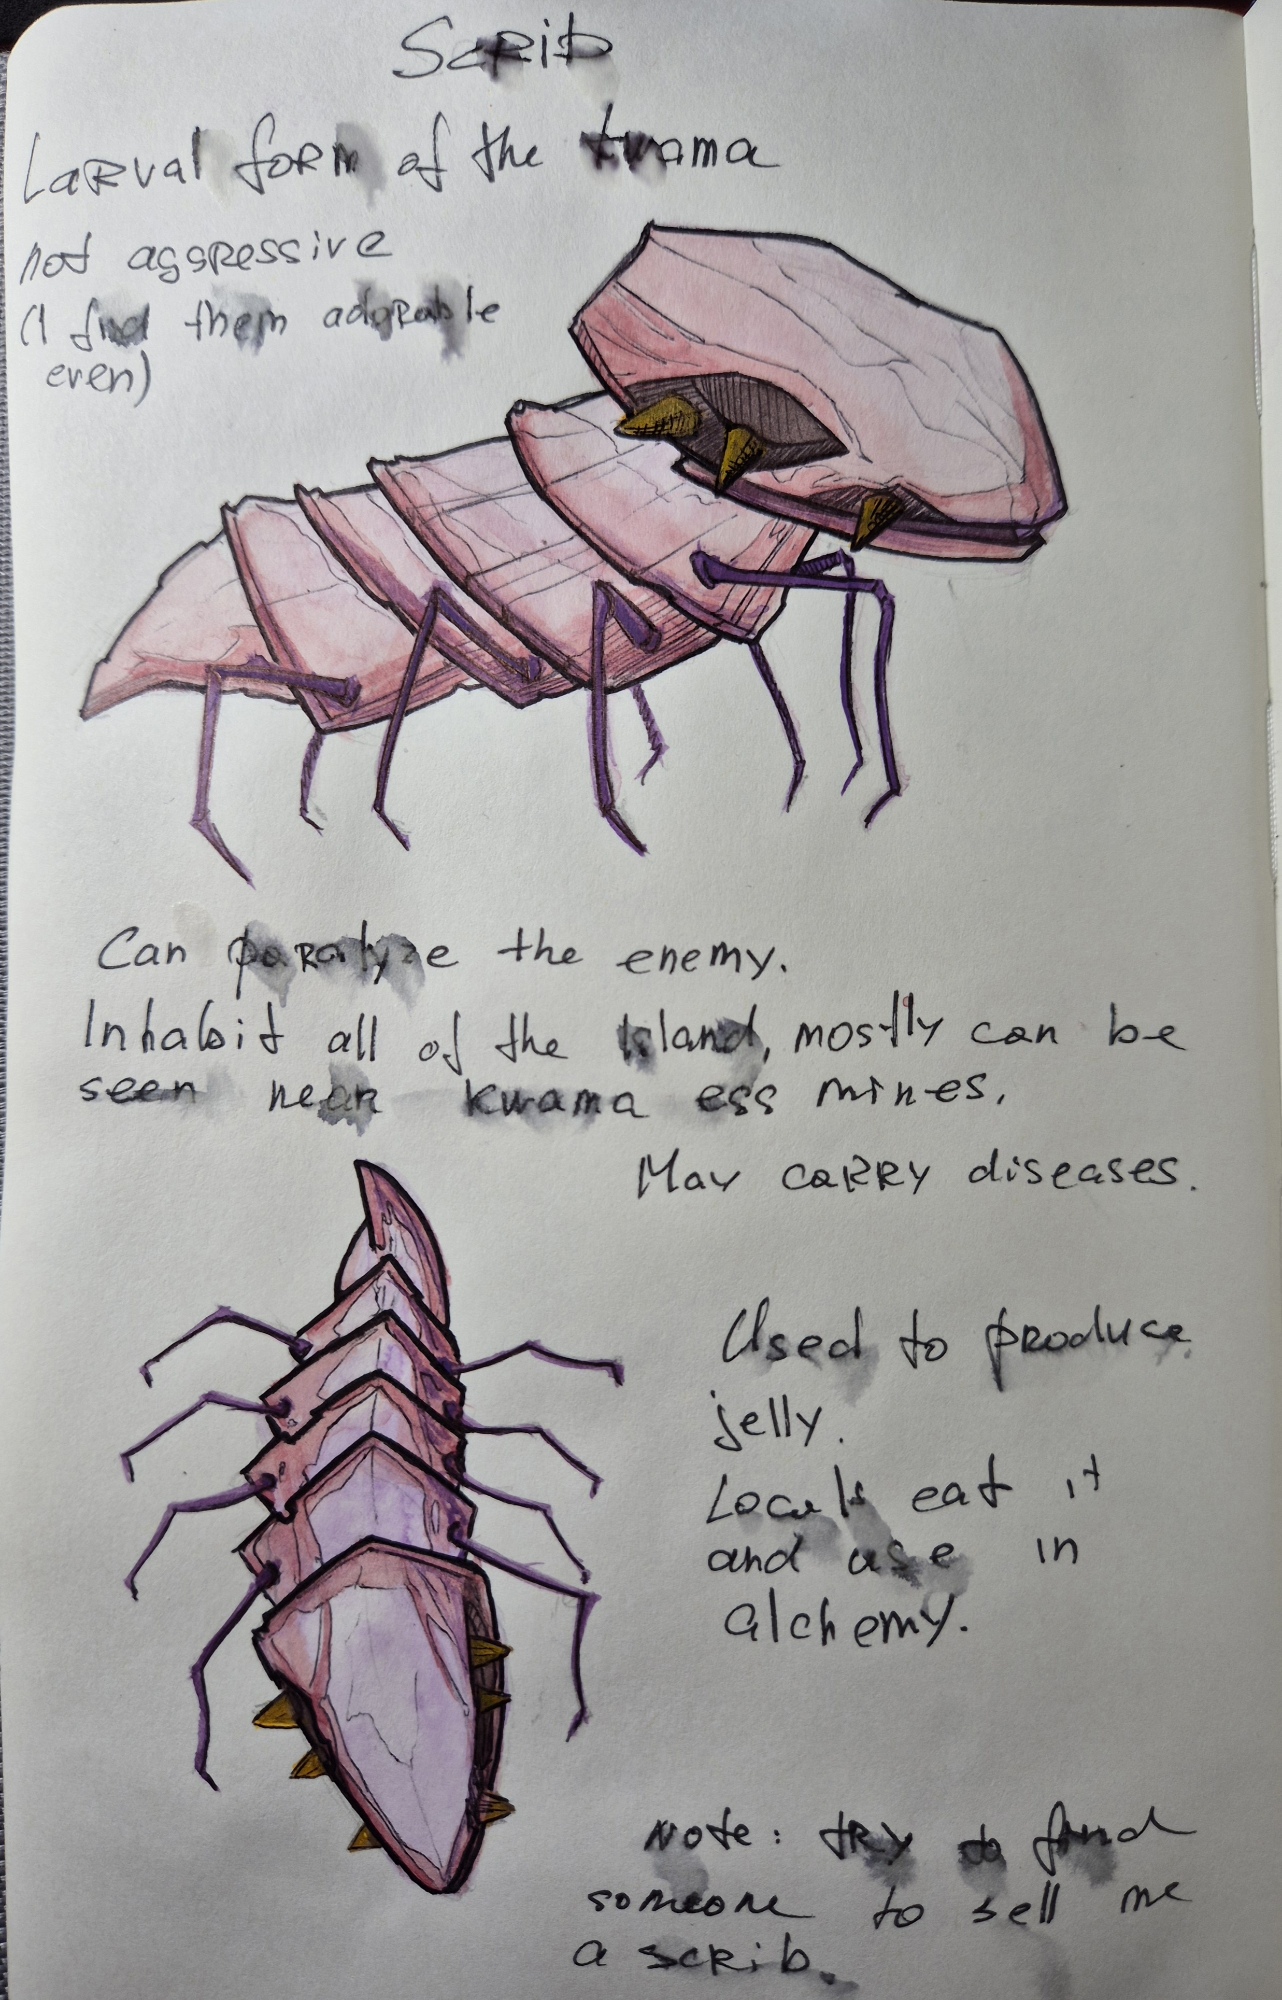 Scrib
Larval form of the kwama
not aggressive
(I find them adorable
even)
Can paralyze the enemy.
Inhabit all of the Island, mostly can be
seen near kwama egg mines.
May carry diseases.
Used to produce
jelly.
Locals eat it
and use in
alchemy.
Note: try to find
someone to sell me
a scrib.